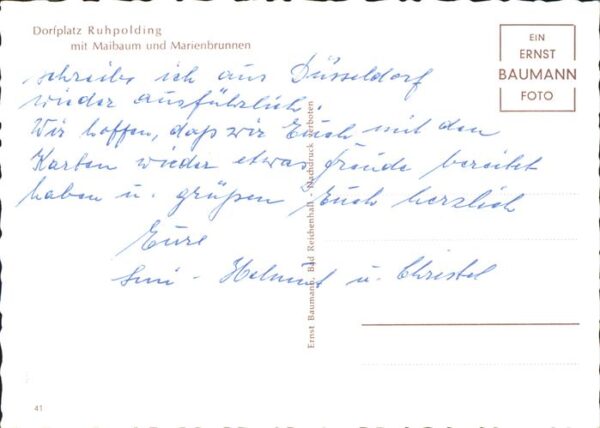 Dorfplatz Ruhpolding
mit Maibaum und Marienbrunnen
EIN
ERNST
BAUMANN
FOTO
schreibe ich aus Düsseldorf
wieder ausführlich.
Wir hoffen, daß wir Euch mit den
Karten wieder etwas Freude bereitet
haben u. grüßen Euch herzlich
Eure
- Helmut u. Christel
Ernst Baumann, Bad Reichenhall - Nachdruck verboten
41